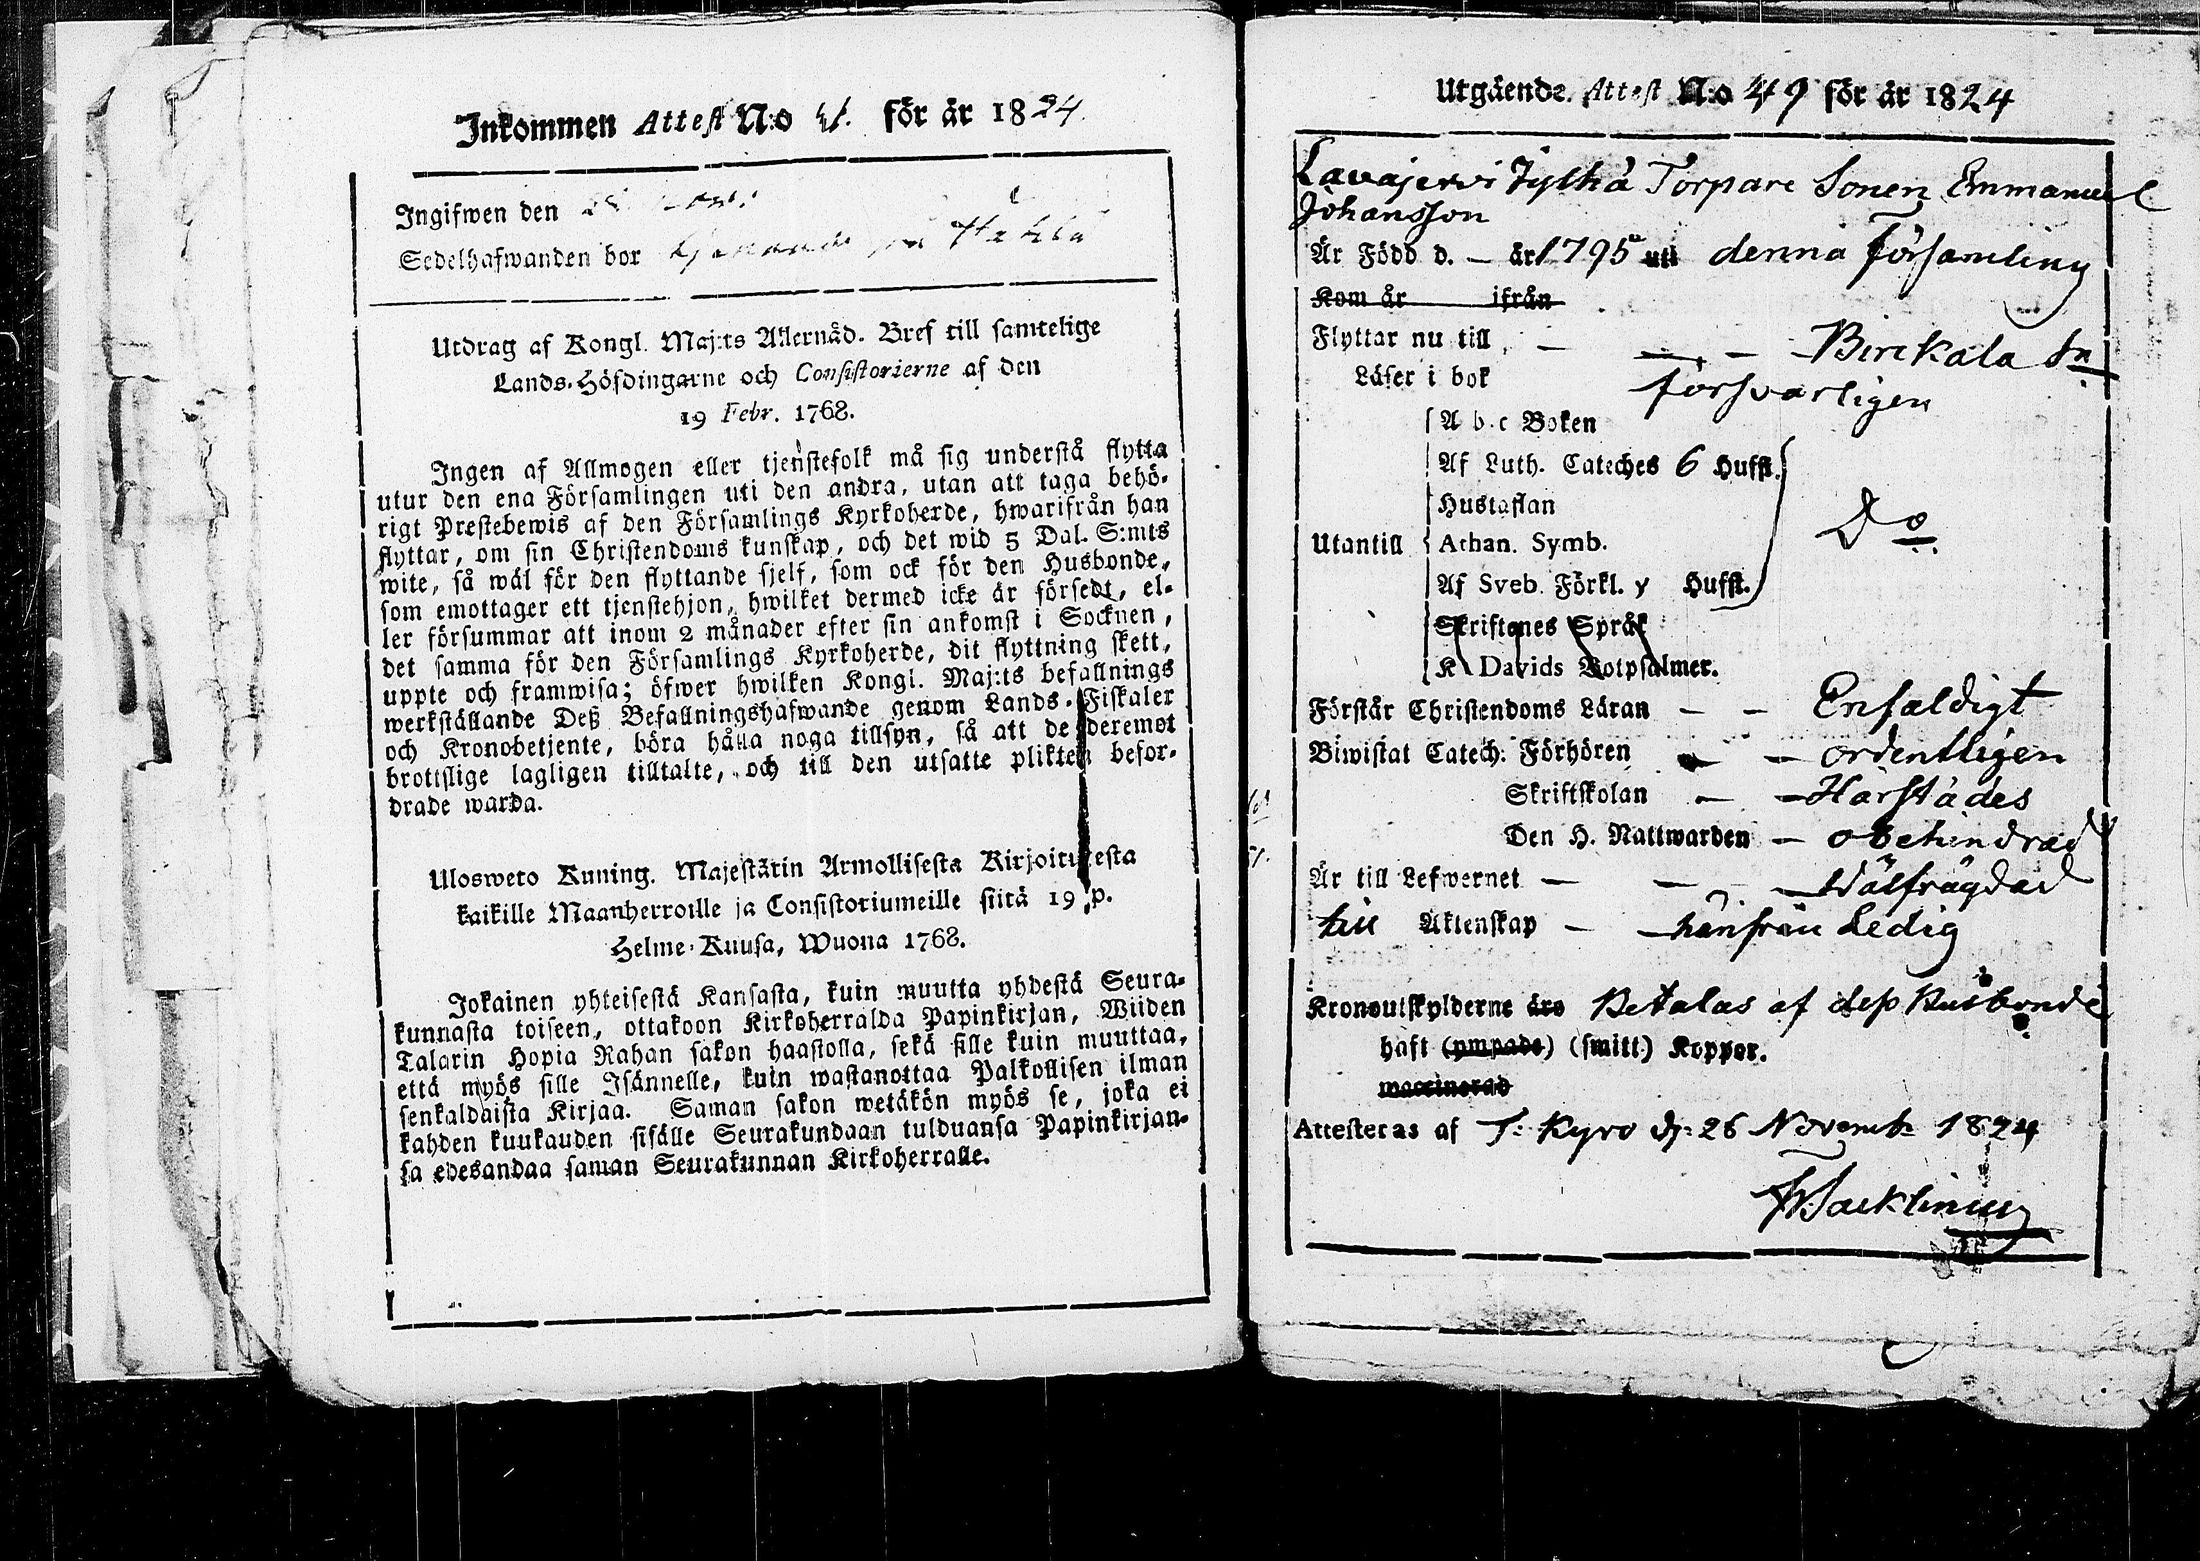 Inkommen Attest N:o 41. för år 1824.
Ingifwen den
Sedelhafwanden bor
Utdrag af Kongl. Maj:ts Allernåd. Bref till samtelige
Lands-Höfdingarne och Consistorierne af den
19 Febr. 1768.
Ingen af Allmogen eller tjenstefolk må sig understå flytta
utur den ena Församlingen uti den andra, utan att taga behö-
rigt Prestebewis af den Församlings Kyrkoherde, hwarifrån han
flyttar, om sin Christendoms kunskap, och det wid 5 Dal. S:mts
wite, så wäl för den flyttande sjelf, som ock för den Husbonde,
som emottager ett tjenstehjon, hwilket dermed icke är försedt, el-
ler försummar att inom 2 månader efter sin ankomst i Socknen,
det samma för den Församlings Kyrkoherde, dit flyttning skett,
uppte och framwisa; öfwer hwilken Kongl. Maj:ts befallnings
werkställande Deß Befallningshafwande genom Lands-Fiskaler
och Kronobetjente, böra hålla noga tillsyn, så att de deremot
brottslige lagligen tilltalte, och till den utsatte plikten befor-
drade warda.
Ulosweto Kuning. Majestätin Armollisesta Kirjoituxesta
kaikille Maanherroille ja Consistoriumeille siitä 19 p.
Helme-Kuusa, Wuona 1768.
Jokainen yhteisestä Kansasta, kuin muutta yhdestä Seura-
kunnasta toiseen, ottakoon Kirkoherralda Papinkirjan, Wiiden
Talarin Hopia Rahan sakon haastolla, sekä sille kuin muuttaa,
että myös sille Isännelle, kuin wastanottaa Palkollisen ilman
senkaldaista Kirjaa. Saman sakon wetäkön myös se, joka ei
kahden kuukauden sisälle Seurakundaan tulduansa Papinkirjan-
sa edesandaa saman Seurakunnan Kirkoherralle.
Utgående Attest N:o 49 för år 1824
Lavajervi Jylhä Torpare Sonen Emmanuel
Johansson
Är Född d. — år 1795 uti denna Församling
Kom år ifrån
Flyttar nu till — — — Birckala Sn
Läser i bok försvarligen
A b c Boken
Af Luth. Cateches 6 Hufst.
Hustaflan
Utantill Athan. Symb. Do
Af Sveb. Förkl. y Hufst.
Skriftenes Språk
K Davids Botpsalmer.
Förstår Christendoms Läran — — Enfaldigt
Biwistat Catech. Förhören — — ordentligen
Skriftskolan — — Härstädes
Den H. Nattwarden — obehindrad
Är till Lefwernet — — — Wälfrägdad
till Äktenskap — härifrån Ledig
Kronoutskylderne äro Betalas af dess Husbonde
haft (ympade) (smitt) Koppor.
vaccinerad
Attesteras af T. Kyro d. 26 Novemb: 1824